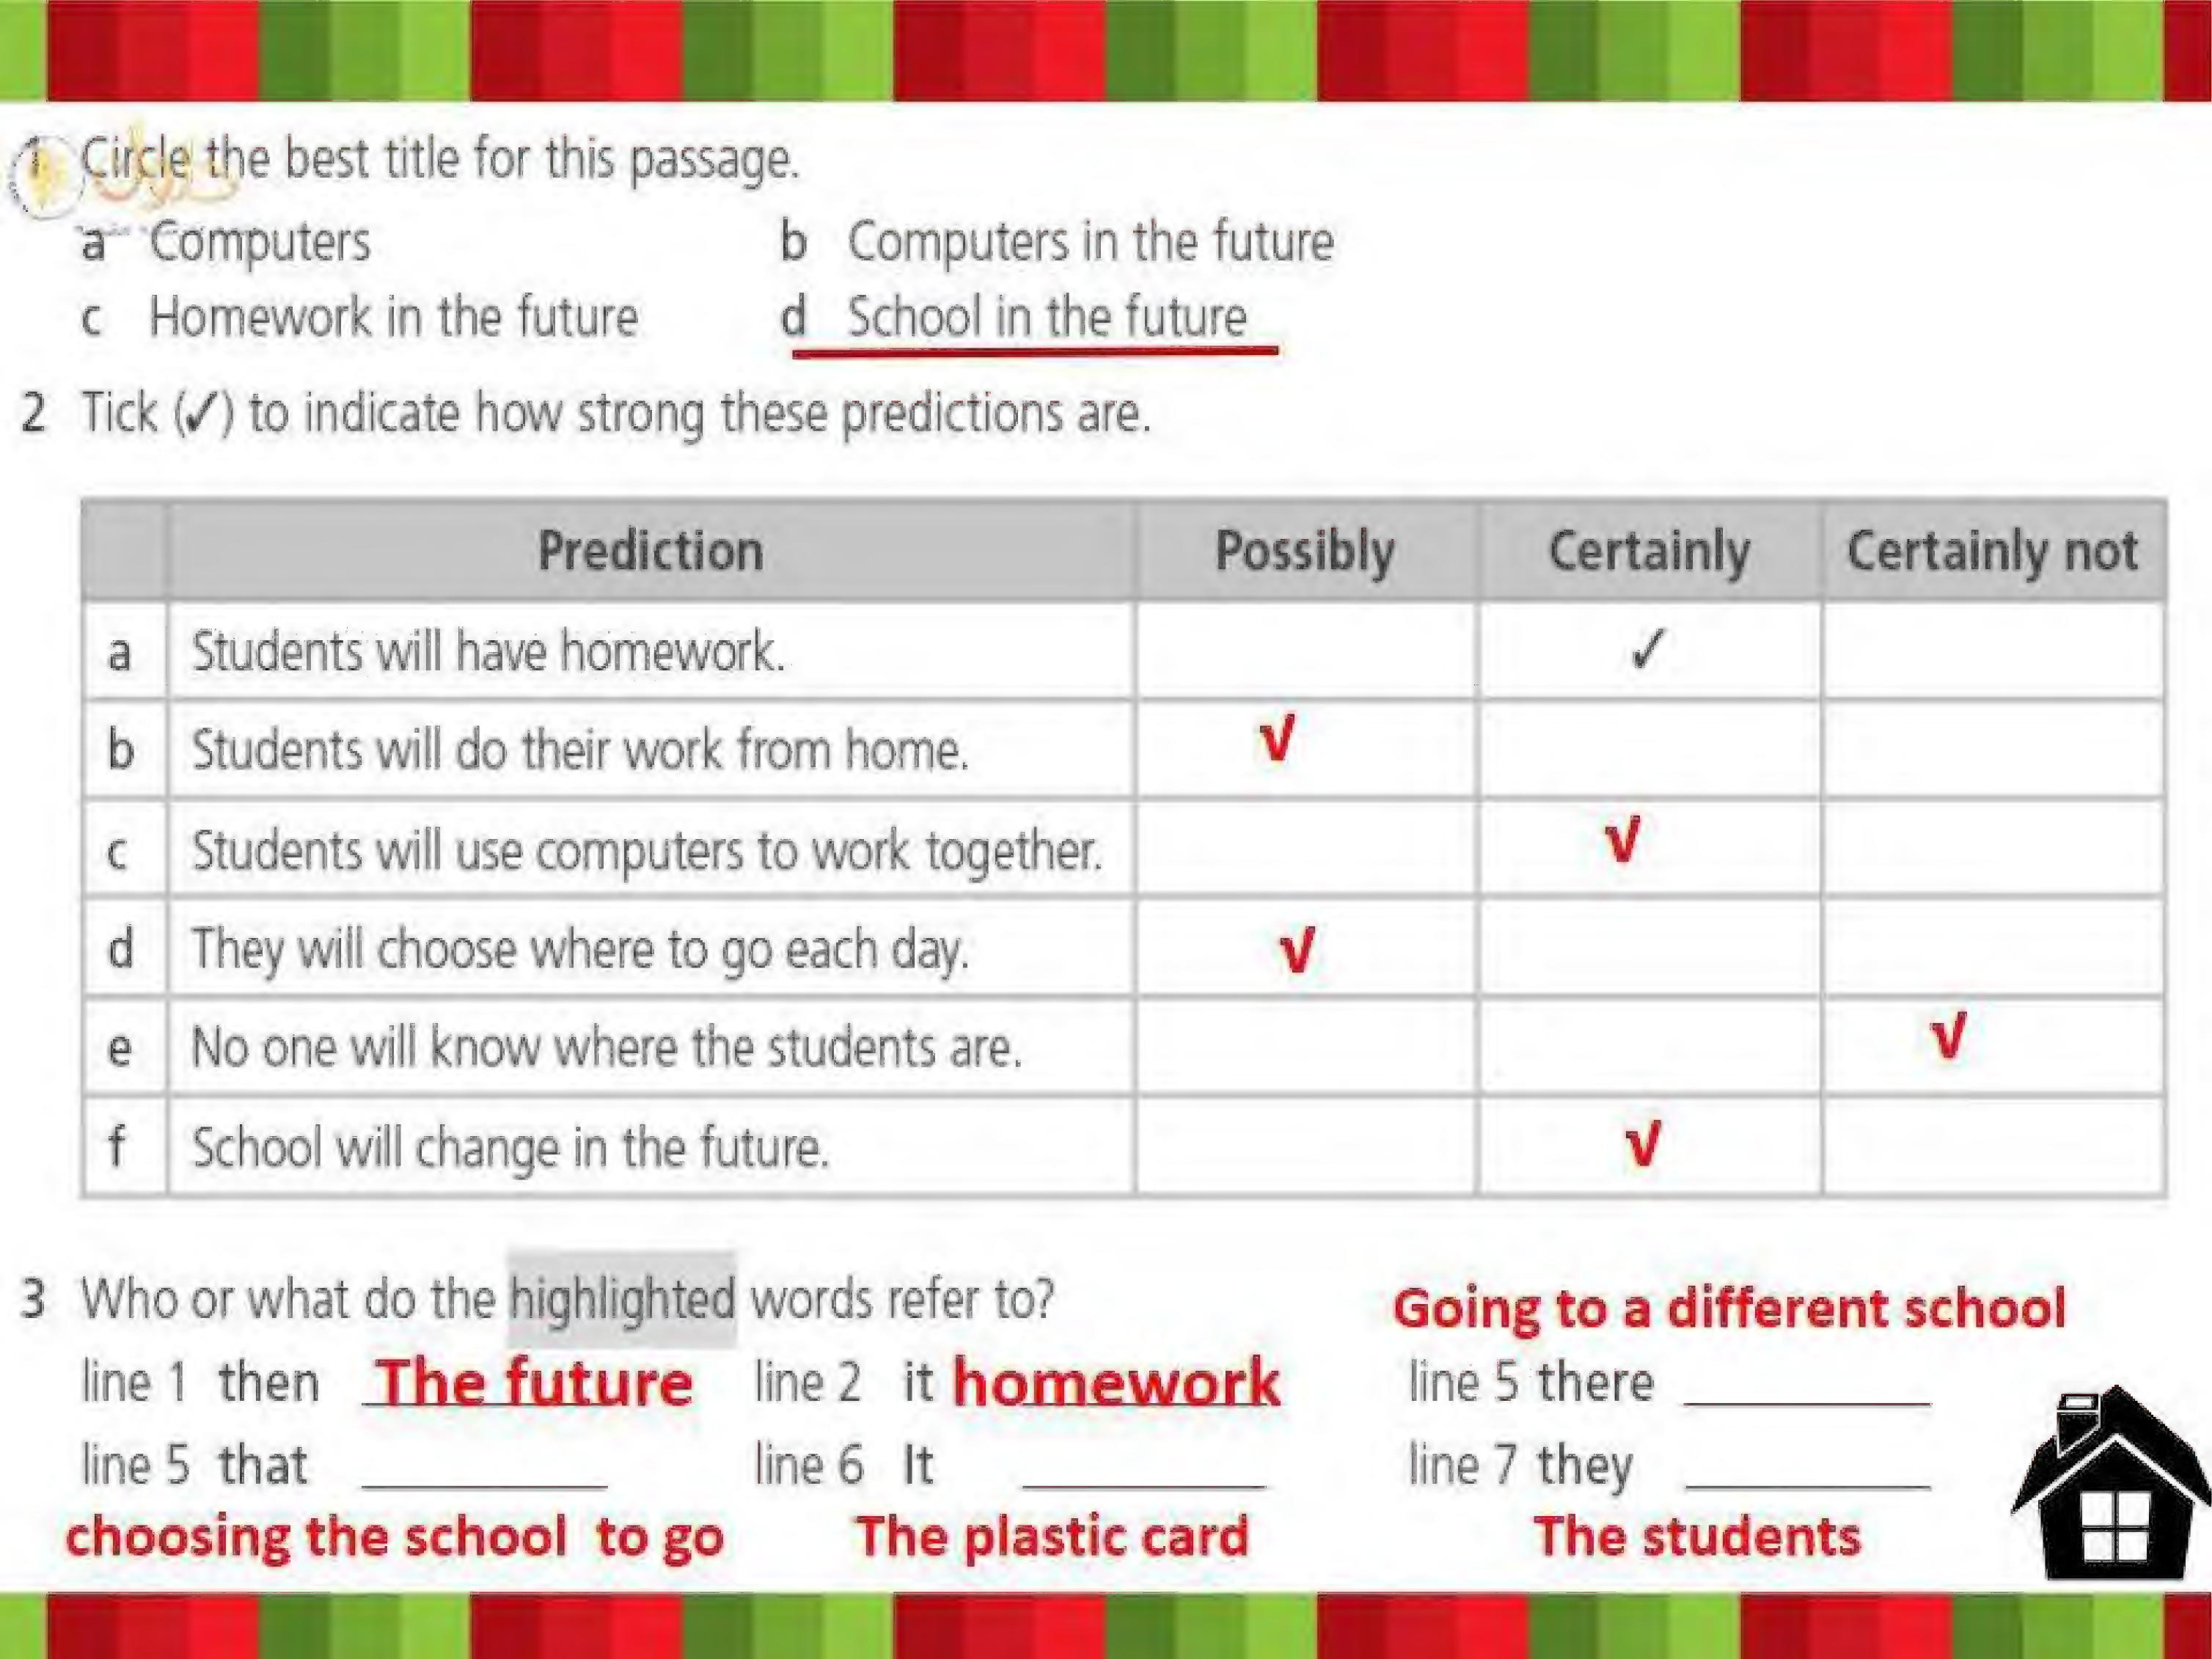 1 Circle the best title for this passage.
a Computers b Computers in the future
c Homework in the future d School in the future
2 Tick (✓) to indicate how strong these predictions are.
Prediction Possibly Certainly Certainly not
a Students will have homework. ✓
b Students will do their work from home. √
c Students will use computers to work together. √
d They will choose where to go each day. √
e No one will know where the students are. √
f School will change in the future. √
3 Who or what do the highlighted words refer to?
Going to a different school
line 1 then The future line 2 it homework line 5 there
line 5 that line 6 It line 7 they
choosing the school to go The plastic card The students